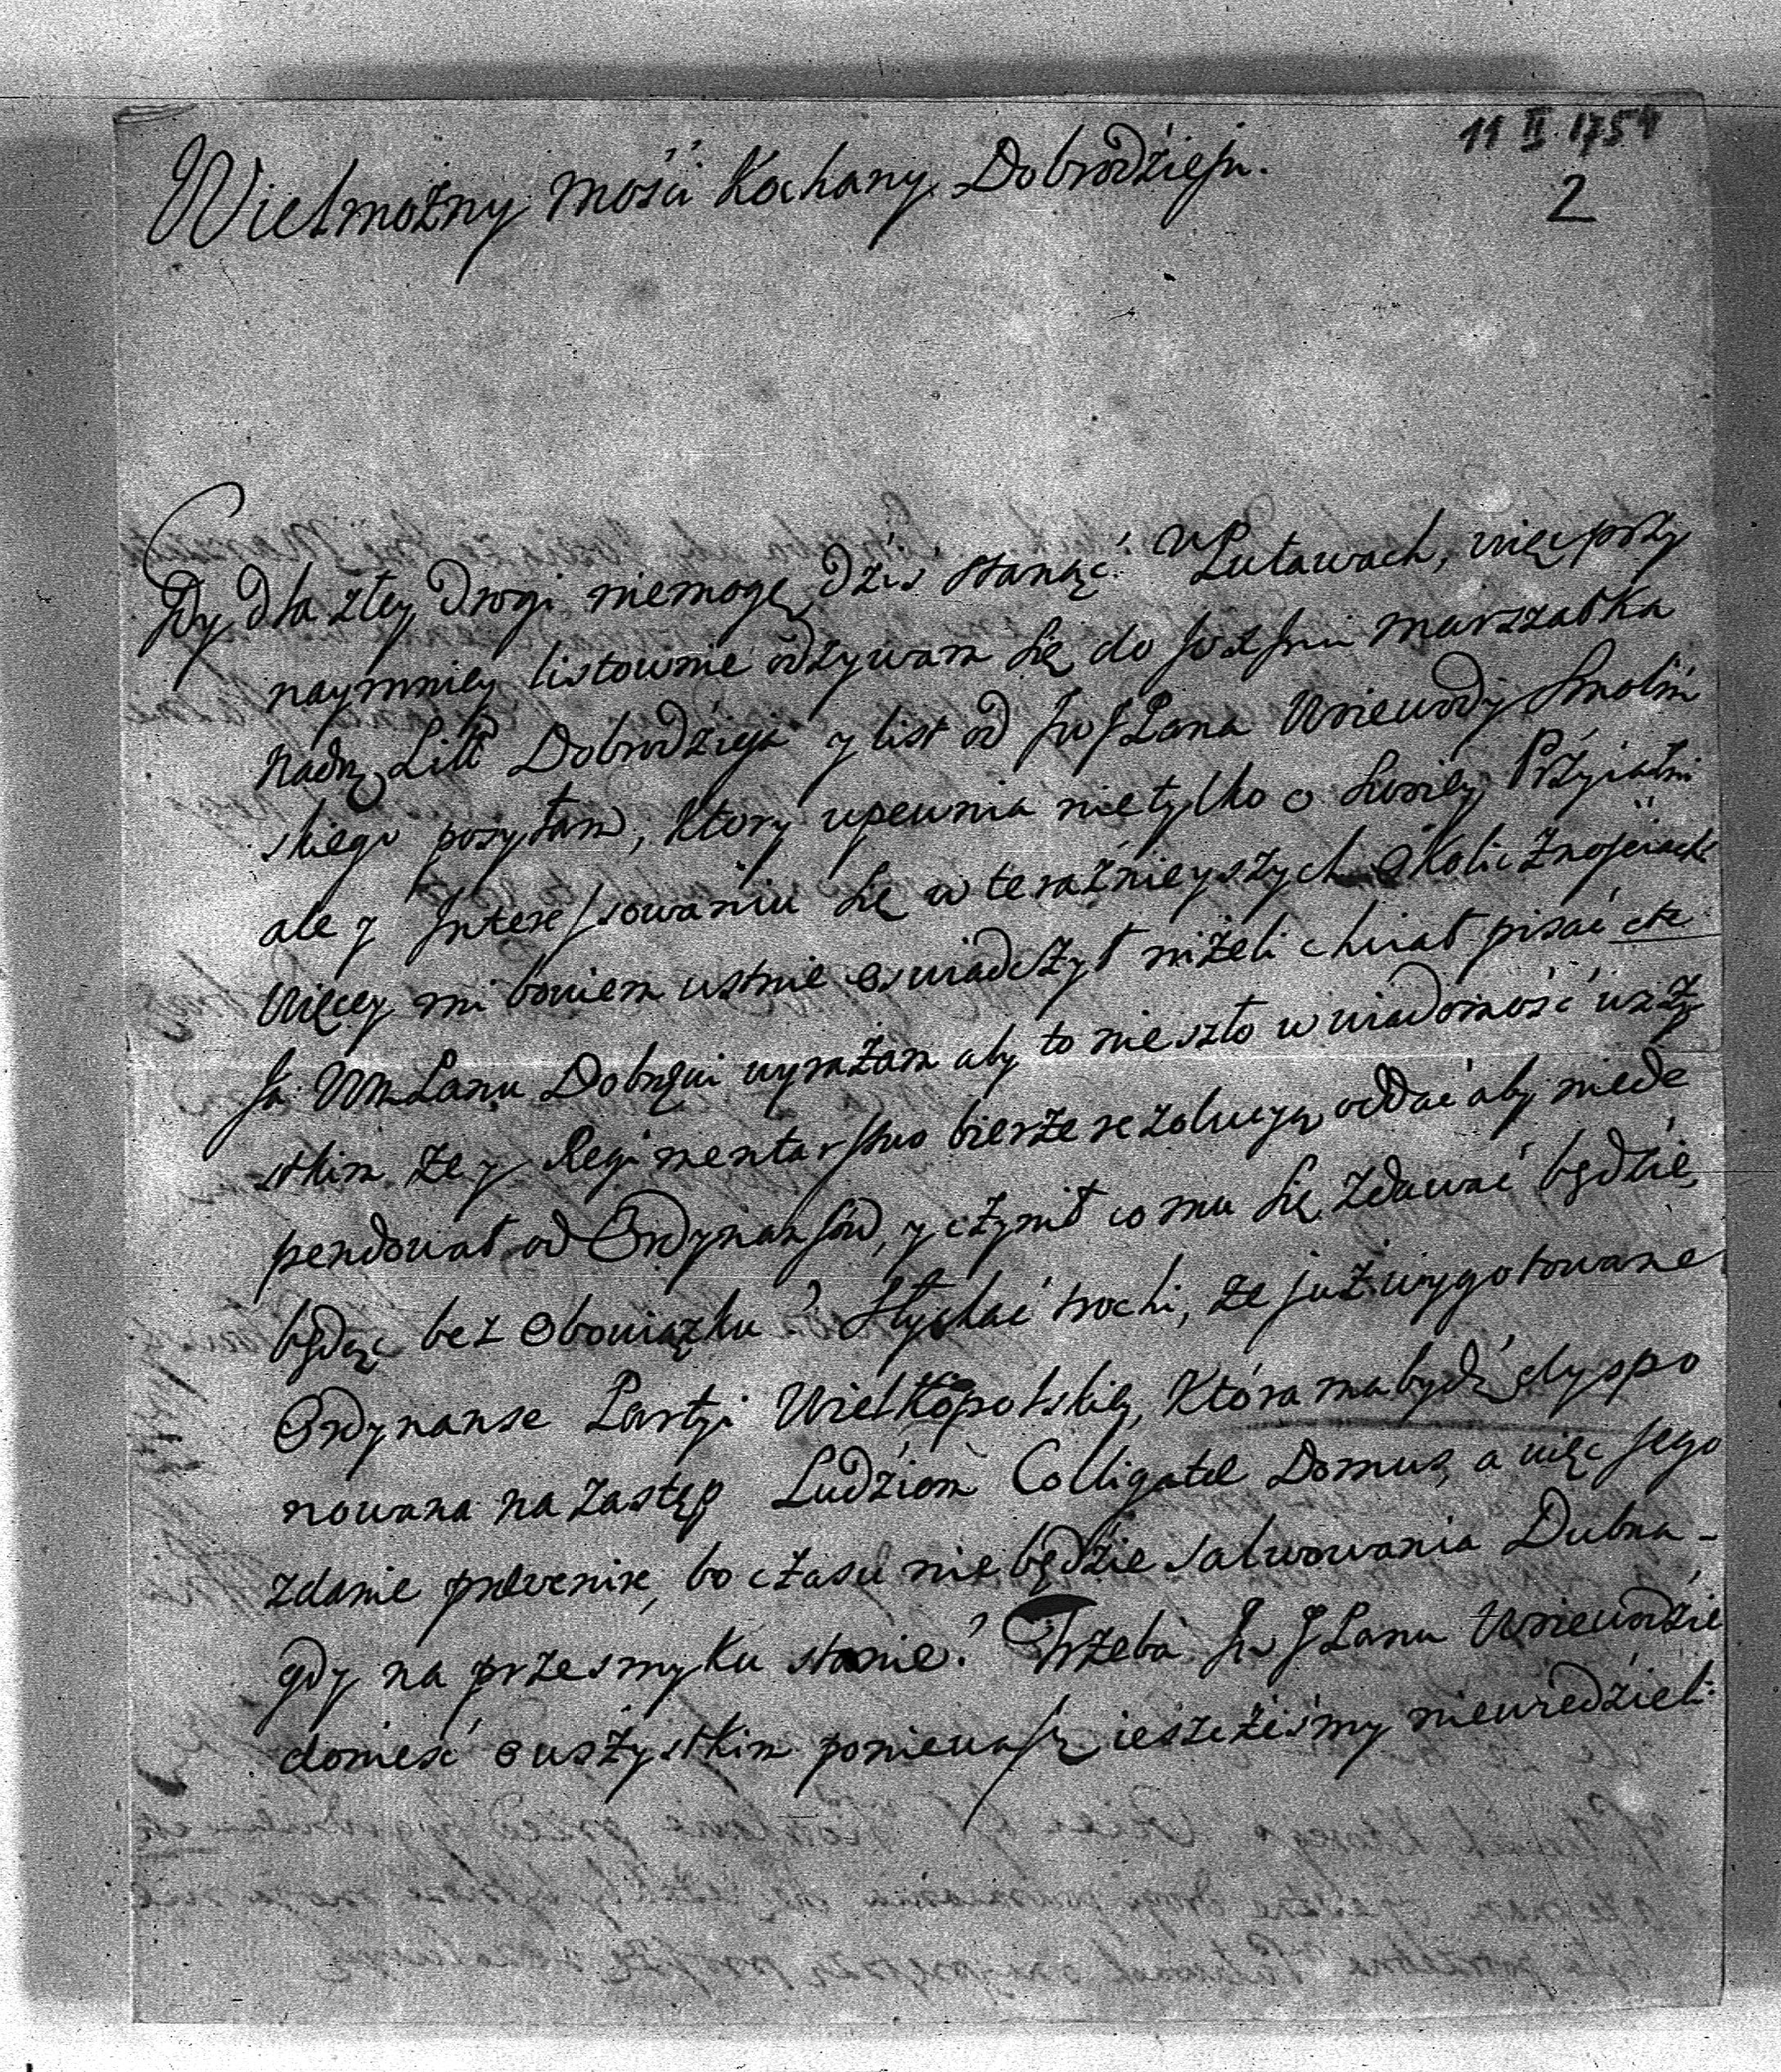 11 II 1754
2
Wielmożny Mości Kochany Dobrodzieju.
Gdy dla złey drogi niemogę dziś stanąć w Puławach, więc przy
naymniey listownie odzywam się do Marszałka
Nadw Litt Dobrodzieja y list od JwJPana Woiewody Smolin
skiego posyłam, ktory upewnia nietylko o swoiey Przyiaźni
ale y Interessowaniu się w teraźnieyszych okolicznościach
Więcey mi bowiem ustnie oswiadczył niżeli chciał pisać etc
Ja WmPanu Dobrqwi wyrażam aby to nie szło w wiadomość wszy
stkim że y Regimentarstwo bierze rezolucyą oddać aby niede
pendował od Ordynansów, y czynił co mu się zdawać będzie
będąc bez obowiązku. Słychać trochi, że już wygotowane
Ordynanse Partyi Wielkopolskiey, Która ma bydź dyspo
nowana na zastęp Ludziom Colligatae Domus, a więc Jego
zdanie praevenire, bo czasu nie będzie salwowania Dubna
gdy na przesmyku stanie. Trzeba JwJPanu Woiewodzie
donieść o wszystkim ponieważ ieszcześmy niewiedzieli